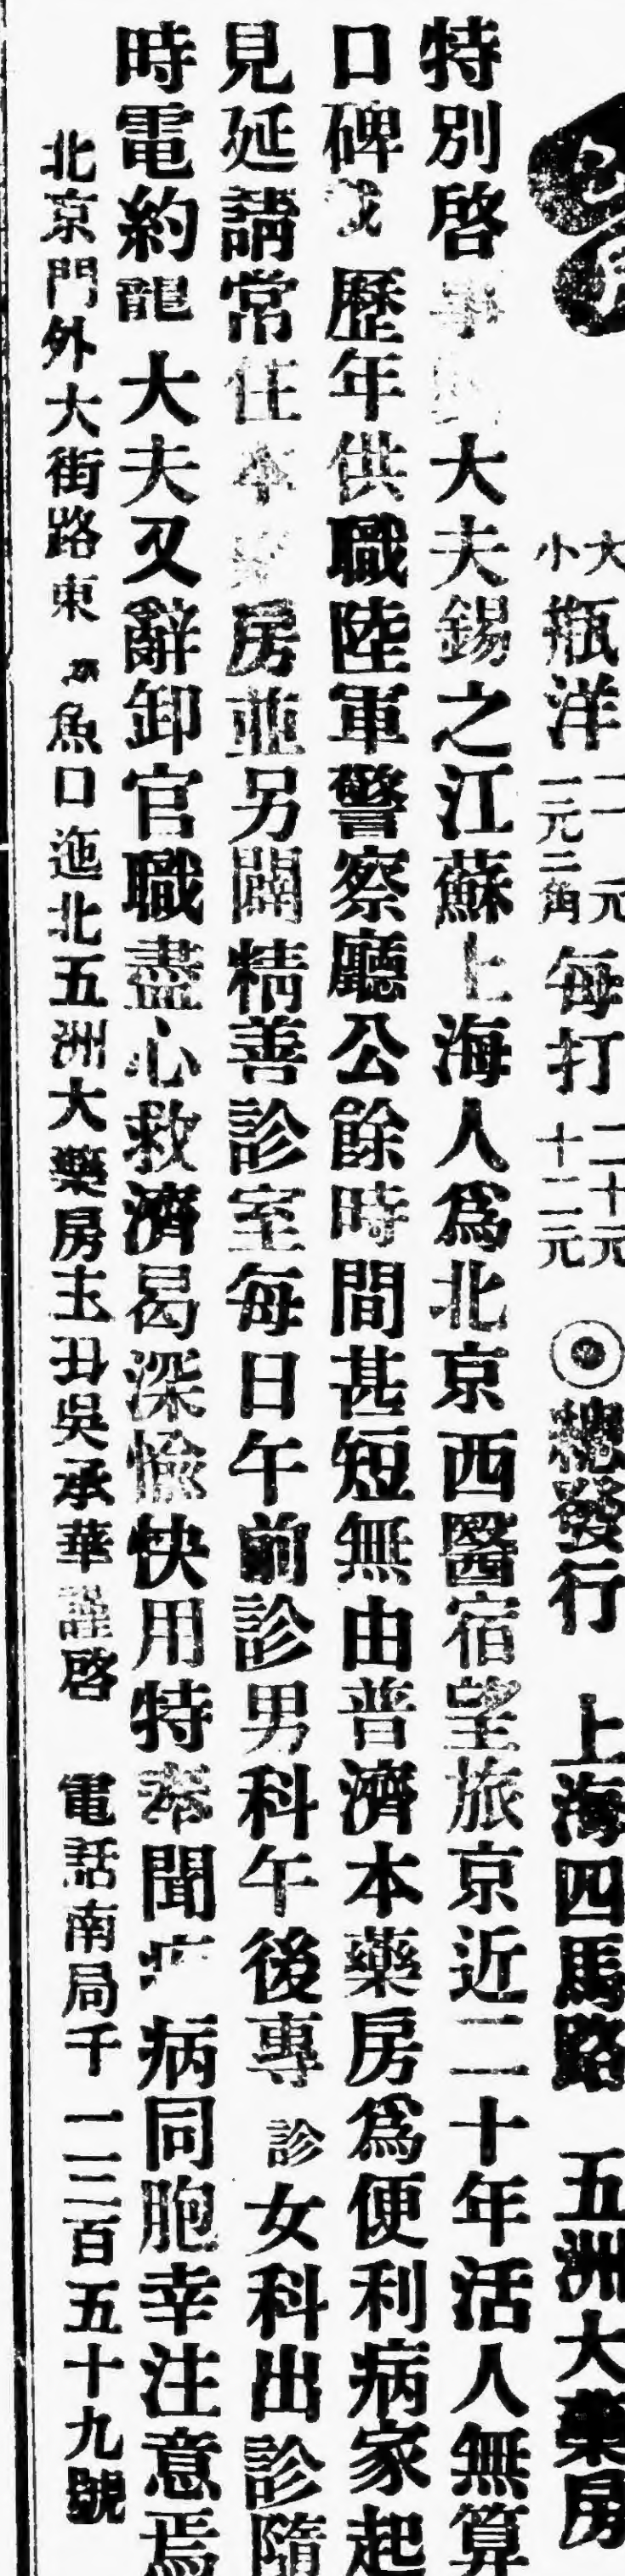 大小瓶洋二元一元二角每打二十元十二元◉總發行 上海四馬路 五洲大藥房
特別啓事 大夫錫之江蘇上海人爲北京西醫宿望旅京近二十年活人無算
口碑 歷年供職陸軍警察廳公餘時間甚短無由普濟本藥房爲便利病家起
見延請常住本藥房並另闢精善診室每日午前診男科午後專診女科出診隨
時電約龍大夫又辭卸官職盡心救濟曷深愉快用特奉聞病同胞幸注意焉
北京門外大街路東 魚口迤北五洲大藥房主 吳承華謹啓 電話南局千二百五十九號